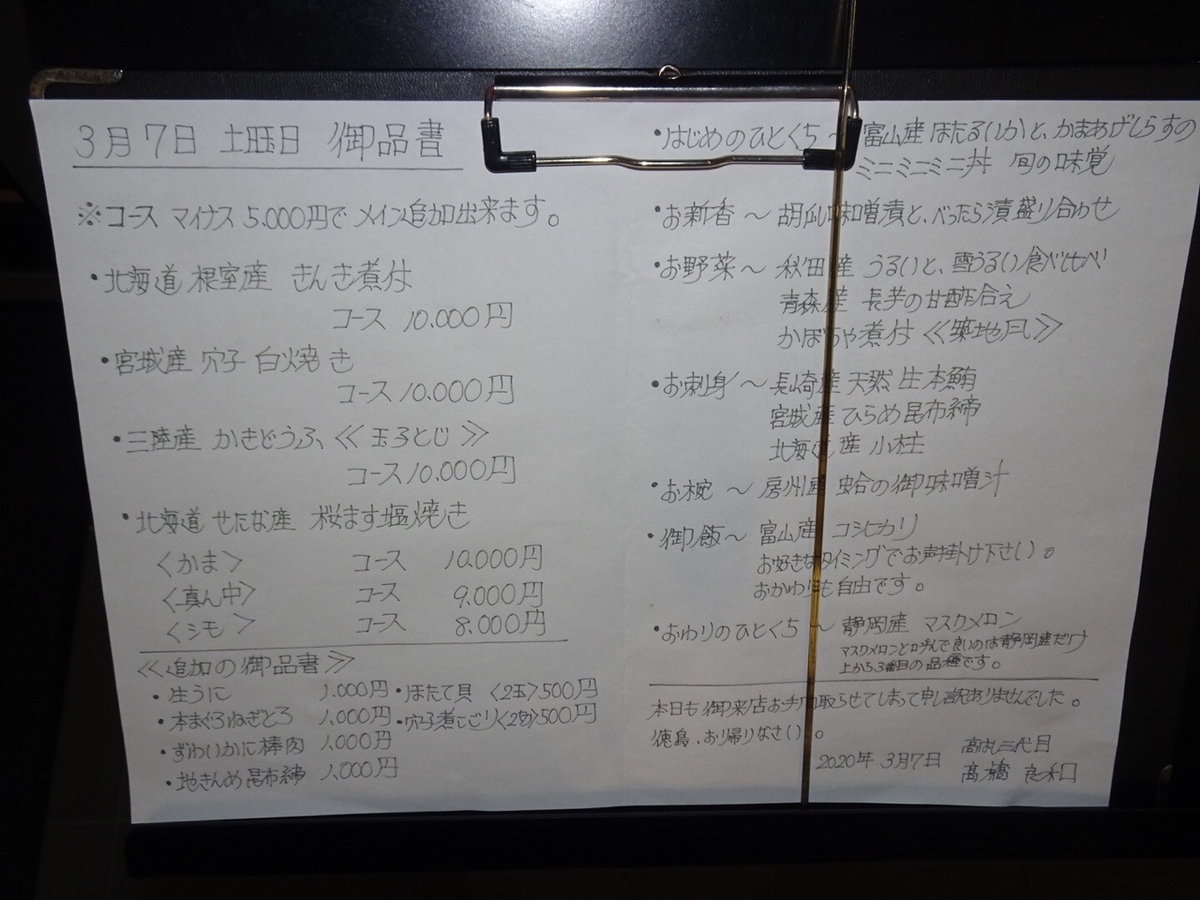 3月7日 土曜日 御品書
※コース マイナス 5.000円で メイン追加出来ます。
・北海道 根室産 きんき煮付
コース 10.000円
・宮城産 穴子 白焼き
コース 10.000円
・三陸産 かきどうふ、≪玉子とじ≫
コース 10.000円
・北海道 せたな産 桜ます塩焼き
〈かま〉 コース 10.000円
〈真ん中〉 コース 9.000円
〈シモ〉 コース 8.000円
≪追加の御品書≫
・生うに 1.000円 ・ほたて貝〈2玉〉500円
・本まぐろねぎとろ 1.000円 ・穴子煮こごり〈2切〉500円
・ずわいかに棒肉 1.000円
・地きんめ昆布締 1.000円
・はじめのひとくち〜 富山産 ほたるいかと、かまあげしらすの
ミニミニミニ丼 旬の味覚
・お新香〜 胡瓜味噌漬と、べったら漬盛り合わせ
・お野菜〜 秋田産 うるいと、雪うるい食べ比べ
青森産 長芋の甘酢合え
かぼちゃ煮付
・お刺身〜 長崎産 天然 生本鮪
宮城産 ひらめ昆布締
北海道産 小柱
・お椀〜 房州産 蛤の御味噌汁
・御飯〜 富山産 コシヒカリ
お好きなタイミングでお声掛け下さい。
おかわりも自由です。
・おわりのひとくち〜 静岡産 マスクメロン
マスクメロンと呼んで良いのは静岡産だけ
上から3番目の品種です。
本日も御来店お手間取らせてしまって申し訳ありませんでした。
徳島、お帰りなさい。
2020年 3月7日 三代目
髙橋 良和